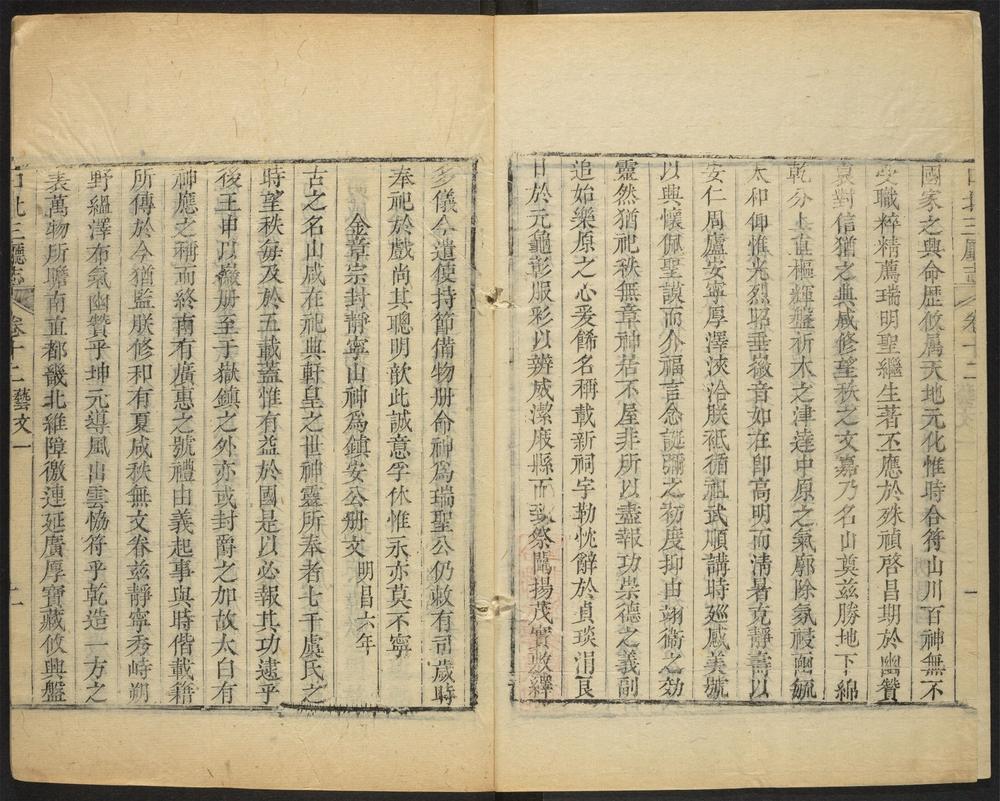 口北三廳志 卷十二 一
國家之興命歷攸屬天地元化惟時合符山川百神無不
受職粹精薦瑞明聖繼生著丕應於殊禎啓昌期於幽贊
裒對信猶之典咸修望秩之文嘉乃名山奠茲勝地下綿
乾分上直樞輝盤析木之津達中原之氣廓除氛祲幽毓
太和仰惟光烈昭垂徽音如在卽高明而淸暑克靜壽以
安仁周廬安寧厚澤浹洽朕祗循祖武順講時廵感美號
以興懷佩聖謨而介福言念誕彌之初度抑由翊衞之効
靈然猶祀秩無章神居不屋非所以盡報功崇德之義副
追始樂原之心爰飾名稱載新祠宇勒忱辭於貞琰涓良
日於元龜彰服彩以辨威潔庪縣而致祭闡揚茂實敷繹
多儀今遣使持節備物册命神爲瑞聖公仍敕有司歲時
奉祀於戲尚其聰明歆此誠意孚休惟永亦莫不寧
金章宗封靜寧山神爲鎮安公册文 明昌六年
古之名山咸在祀典軒皇之世神靈所奉者七千虞氏之
時望秩每及於五載蓋惟有益於國是以必報其功逮乎
後王申以徽册至于嶽鎮之外亦或封爵之加故太白有
神應之稱而終南有廣惠之號禮由義起事與時偕載籍
所傳於今猶監朕修和有夏咸秩無文眷茲靜寧秀峙朔
野緼澤布氣幽贊乎坤元導風出雲恊符乎乾造一方之
表萬物所瞻南直都畿北維障徼連延廣厚寶藏攸興盤
口北三廳志 卷十二 藝文一 二